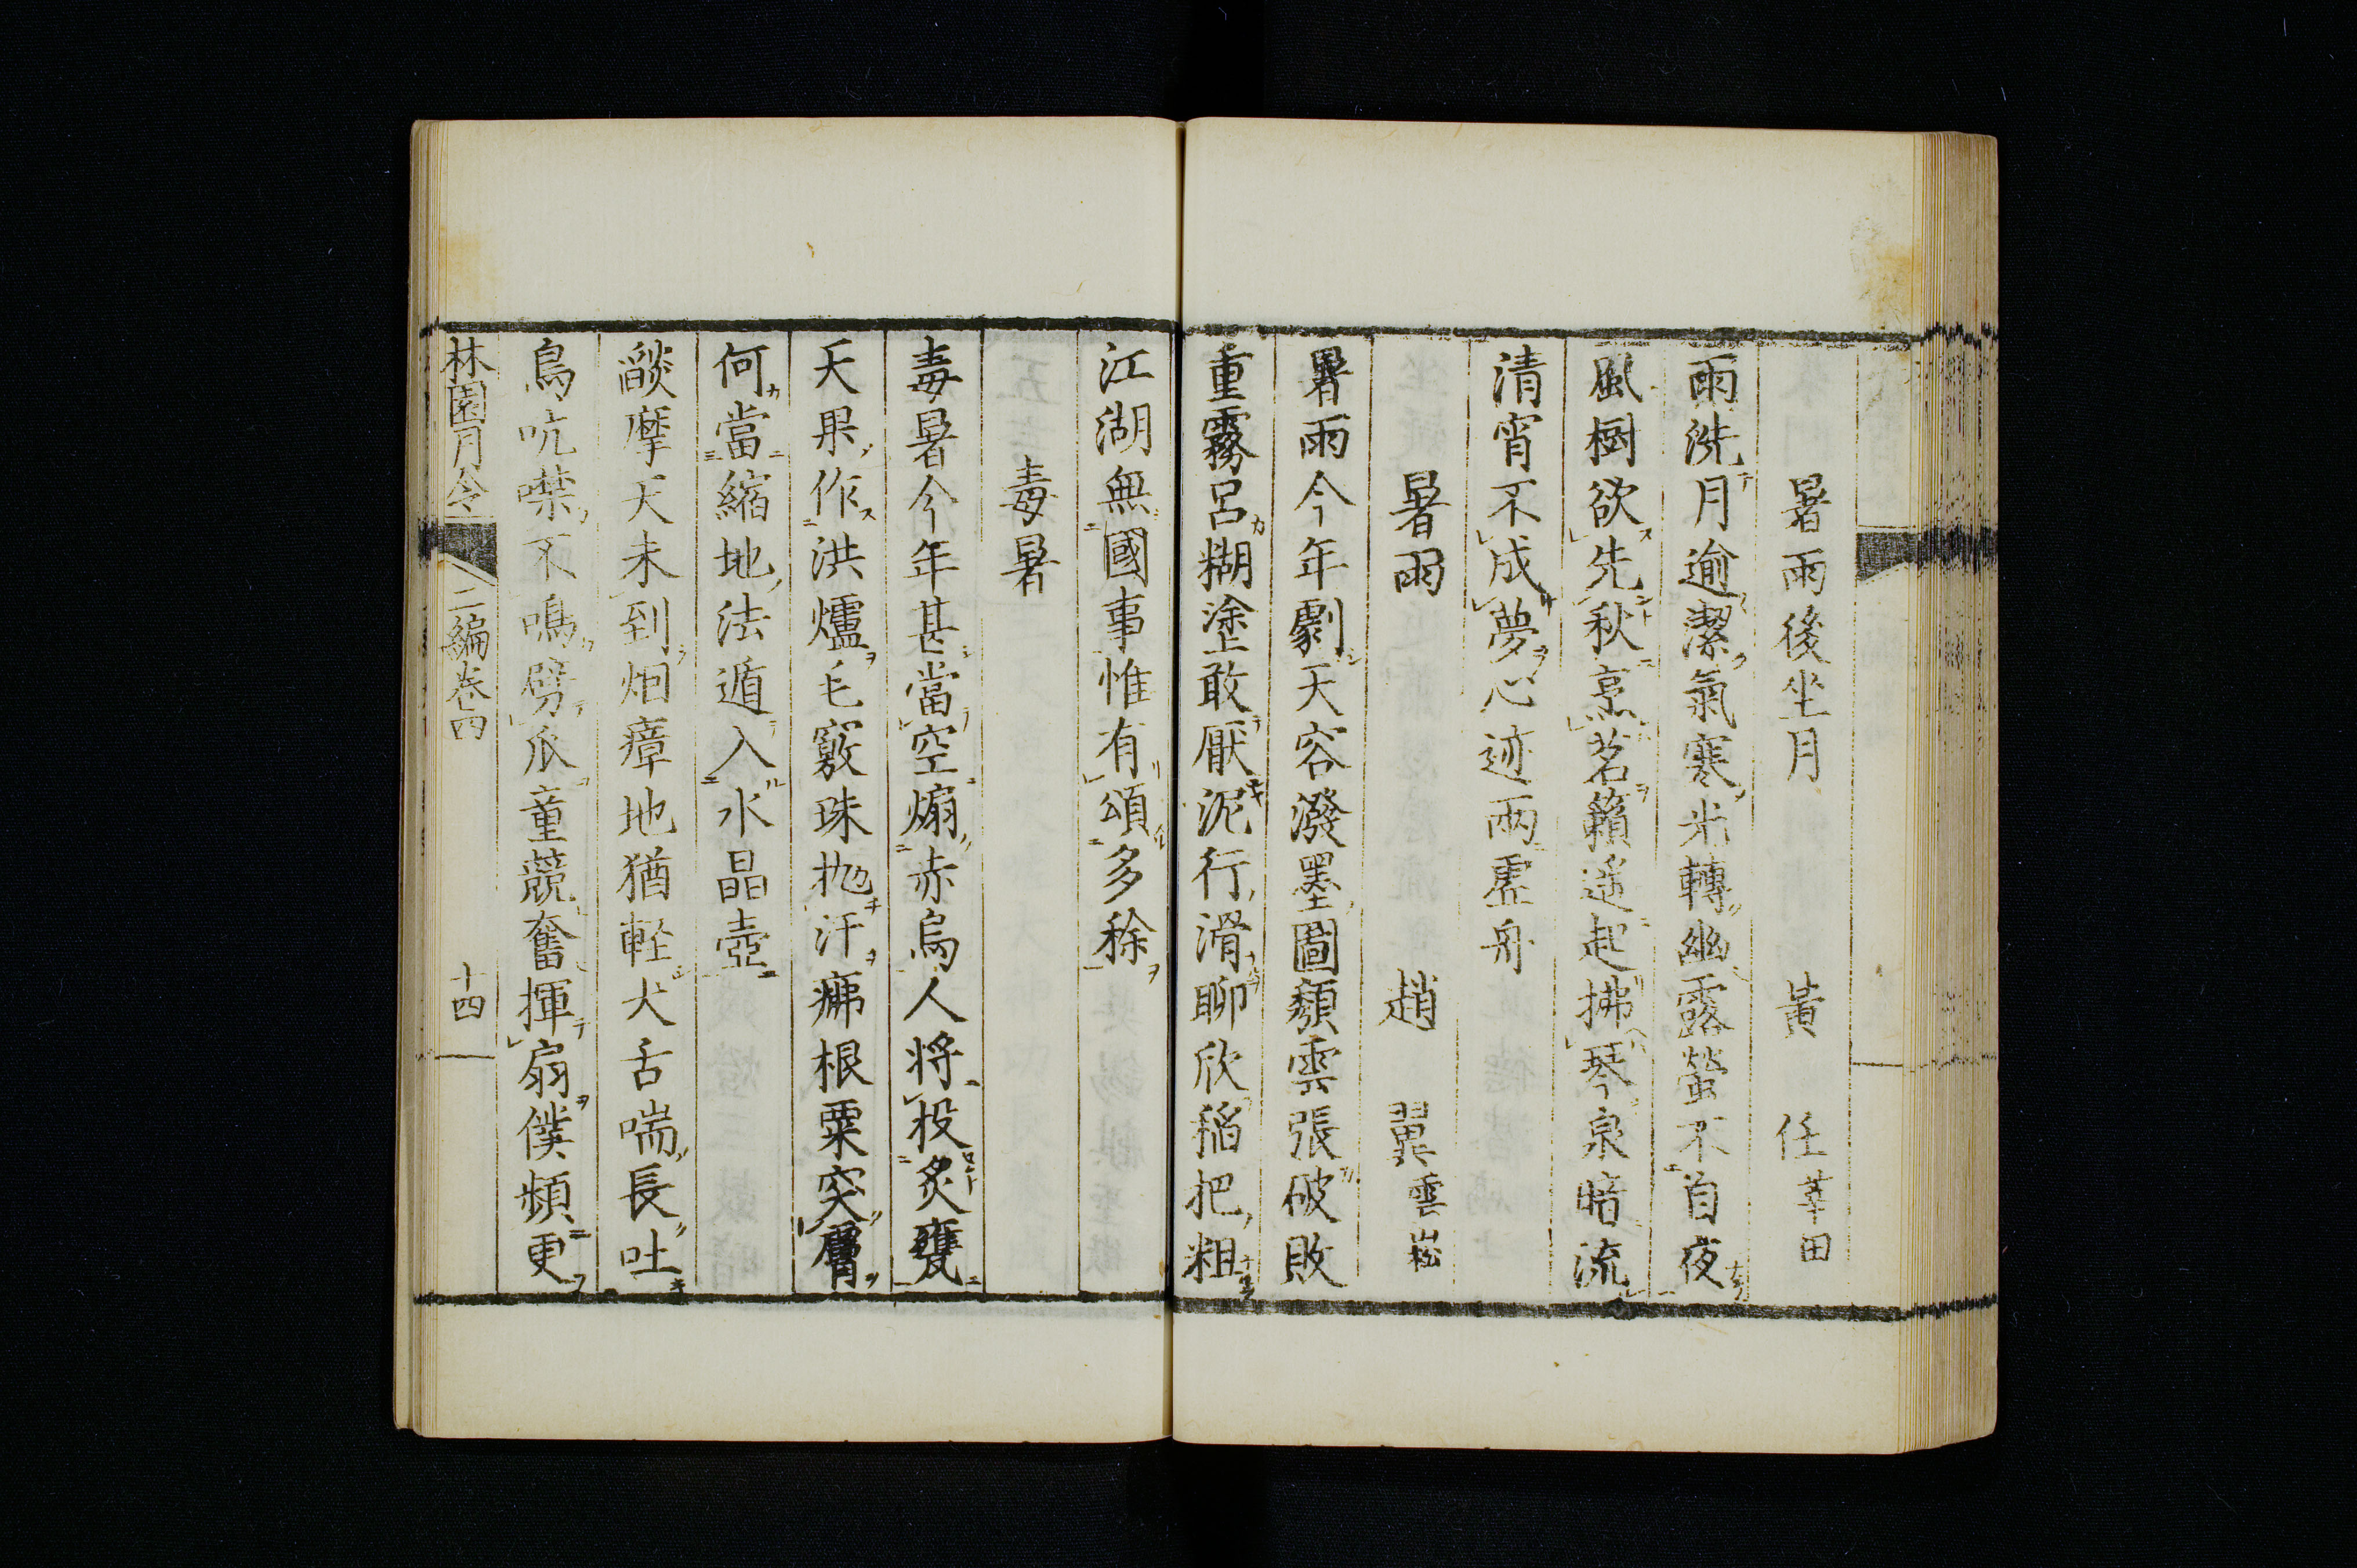 暑雨後坐月　黃　任莘田
雨洗月逾潔氣寒光轉幽露螢不自夜
風樹欲先秋烹茗籟遥起拂琴泉暗流
清宵不成夢心迹兩虛舟
暑雨　趙　翼雲崧
暑雨今年劇天容潑墨圖頽雲張破敗
重霧呂糊塗敢厭泥行滑聊欣稻把粗
江湖無國事惟有頌多稌
毒暑
毒暑今年甚當空煽赤烏人將投炙甕
天果作洪爐毛竅珠抛汗疿根粟突膚
何當縮地法遁入水晶壺
燄摩天未到烟瘴地猶輕犬舌喘長吐
鳥吭噤不鳴劈瓜童競奮揮扇僕頻更
林園月令　二編卷四　十四